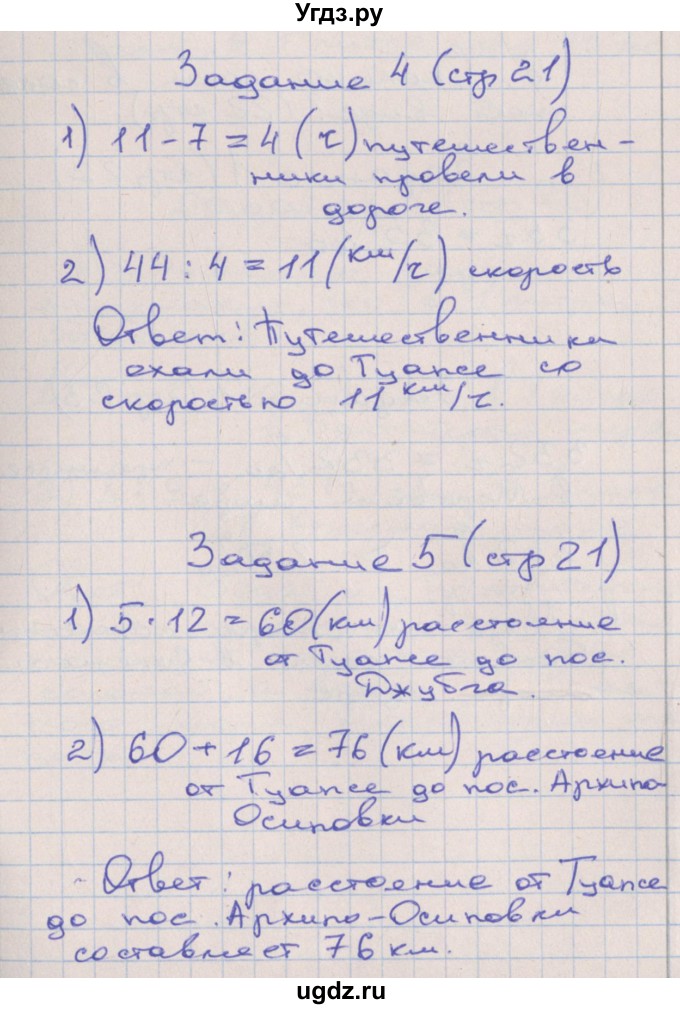 Угдз.ру
Задание 4 (стр 21)
1) 11 - 7 = 4 (ч) путешествен-
ники провели в
дороге.
2) 44 : 4 = 11 (км/ч) скорость
Ответ: Путешественники
ехали до Туапсе со
скоростью 11 км/ч.
Задание 5 (стр 21)
1) 5 · 12 = 60 (км) расстояние
от Туапсе до пос.
Джубга.
2) 60 + 16 = 76 (км) расстоение
от Туапсе до пос. Архипо-
Осиповки
Ответ: расстоение от Туапсе
до пос. Архипо-Осиповки
составляет 76 км.
ugdz.ru